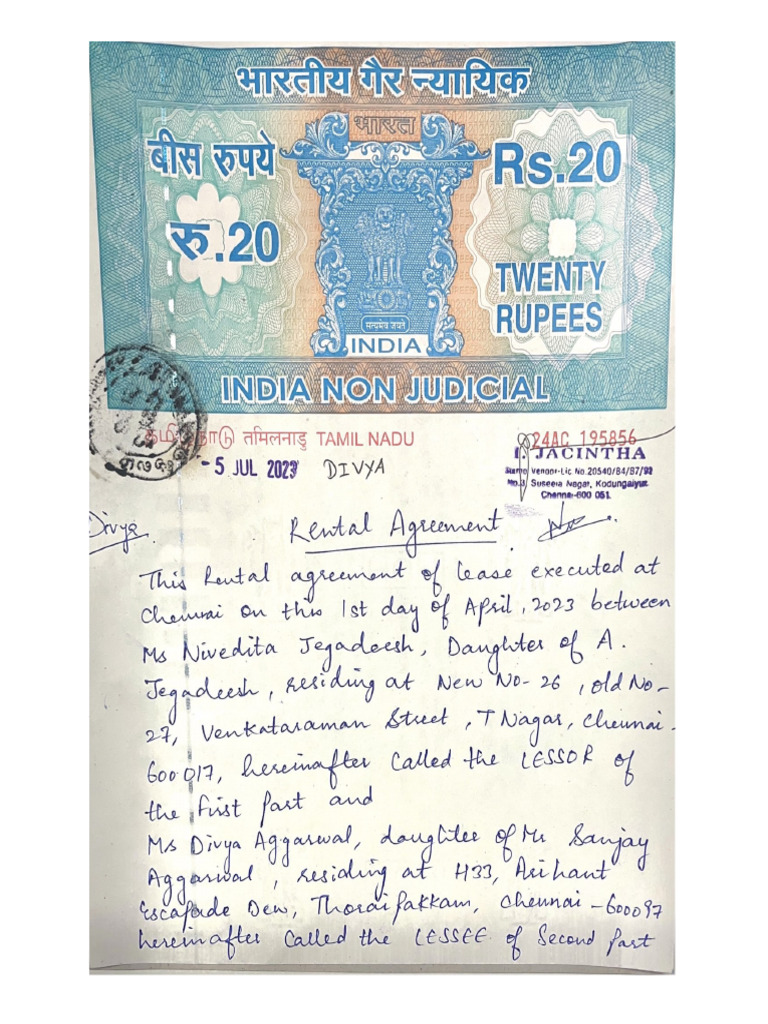 भारतीय गैर न्यायिक
भारत
बीस रुपये
Rs.20
रु.20
TWENTY
RUPEES
सत्यमेव जयते
INDIA
INDIA NON JUDICIAL
தமிழ்நாடு तमिलनाडु TAMIL NADU
24AC 195856
- 5 JUL 2023
DIVYA
JACINTHA
Stamp Vendor-Lic No.20540/B4/97/92
No.3, Suseela Nagar, Kodungaiyur,
Chennai-600 051.
Divya
Rental Agreement
This Rental agreement of lease executed at
Chennai on this 1st day of April, 2023 between
Ms Nivedita Jegadeesh, Daughter of A.
Jegadeesh, residing at New No-26, old No-
27, Venkataraman Street, T Nagar, Chennai-
600017, hereinafter called the LESSOR of
the first part and
Ms Divya Aggarwal, daughter of Mr Sanjay
Aggarwal, residing at H33, Arihant
Escapade Dew, Thoraipakkam, Chennai -600097
hereinafter called the LESSEE of Second part